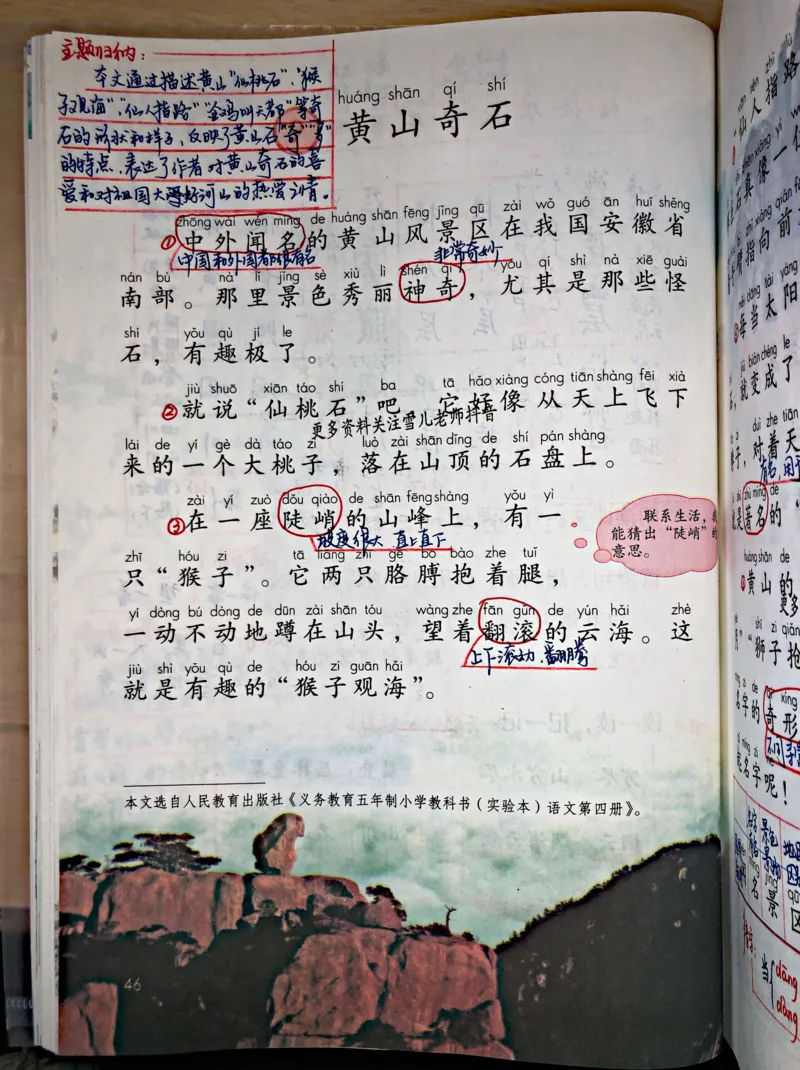 主题归纳：
本文通过描述黄山“仙桃石”、“猴
子观海”、“仙人指路”“金鸡叫天都”等奇
石的形状和样子，反映了黄山石“奇”
的特点，表达了作者对黄山奇石的喜
爱和对祖国大好河山的热爱之情。
huáng shān qí shí
黄山奇石
zhōng wài wén míng de huáng shān fēng jǐng qū zài wǒ guó ān huī shěng
①中外闻名的黄山风景区在我国安徽省
中国和外国都很有名
非常奇妙
nán bù nà lǐ jǐng sè xiù lì shén qí yóu qí shì nà xiē guài
南部。那里景色秀丽神奇，尤其是那些怪
shí yǒu qù jí le
石，有趣极了。
jiù shuō xiān táo shí ba tā hǎo xiàng cóng tiān shàng fēi xià
②就说“仙桃石”吧，它好像从天上飞下
更多资料关注雪儿老师抖音
lái de yí gè dà táo zi luò zài shān dǐng de shí pán shàng
来的一个大桃子，落在山顶的石盘上。
zài yí zuò dǒu qiào de shān fēng shàng yǒu yì
③在一座陡峭的山峰上，有一
坡度很大 直上直下
联系生活，我
能猜出“陡峭”的
意思。
zhī hóu zi tā liǎng zhī gē bo bào zhe tuǐ
只“猴子”。它两只胳膊抱着腿，
yí dòng bú dòng de dūn zài shān tóu wàng zhe fān gǔn de yún hǎi zhè
一动不动地蹲在山头，望着翻滚的云海。这
上下滚动、翻腾
jiù shì yǒu qù de hóu zi guān hǎi
就是有趣的“猴子观海”。
本文选自人民教育出版社《义务教育五年制小学教科书（实验本）语文第四册》。
46
仙人指路
石真像一位
指向前
每当太阳
就变成了
对着天
著名的“
黄山的
更多
“狮子抢
名字的奇形
起名字呢！
景色
景物
当
dāng
dàng